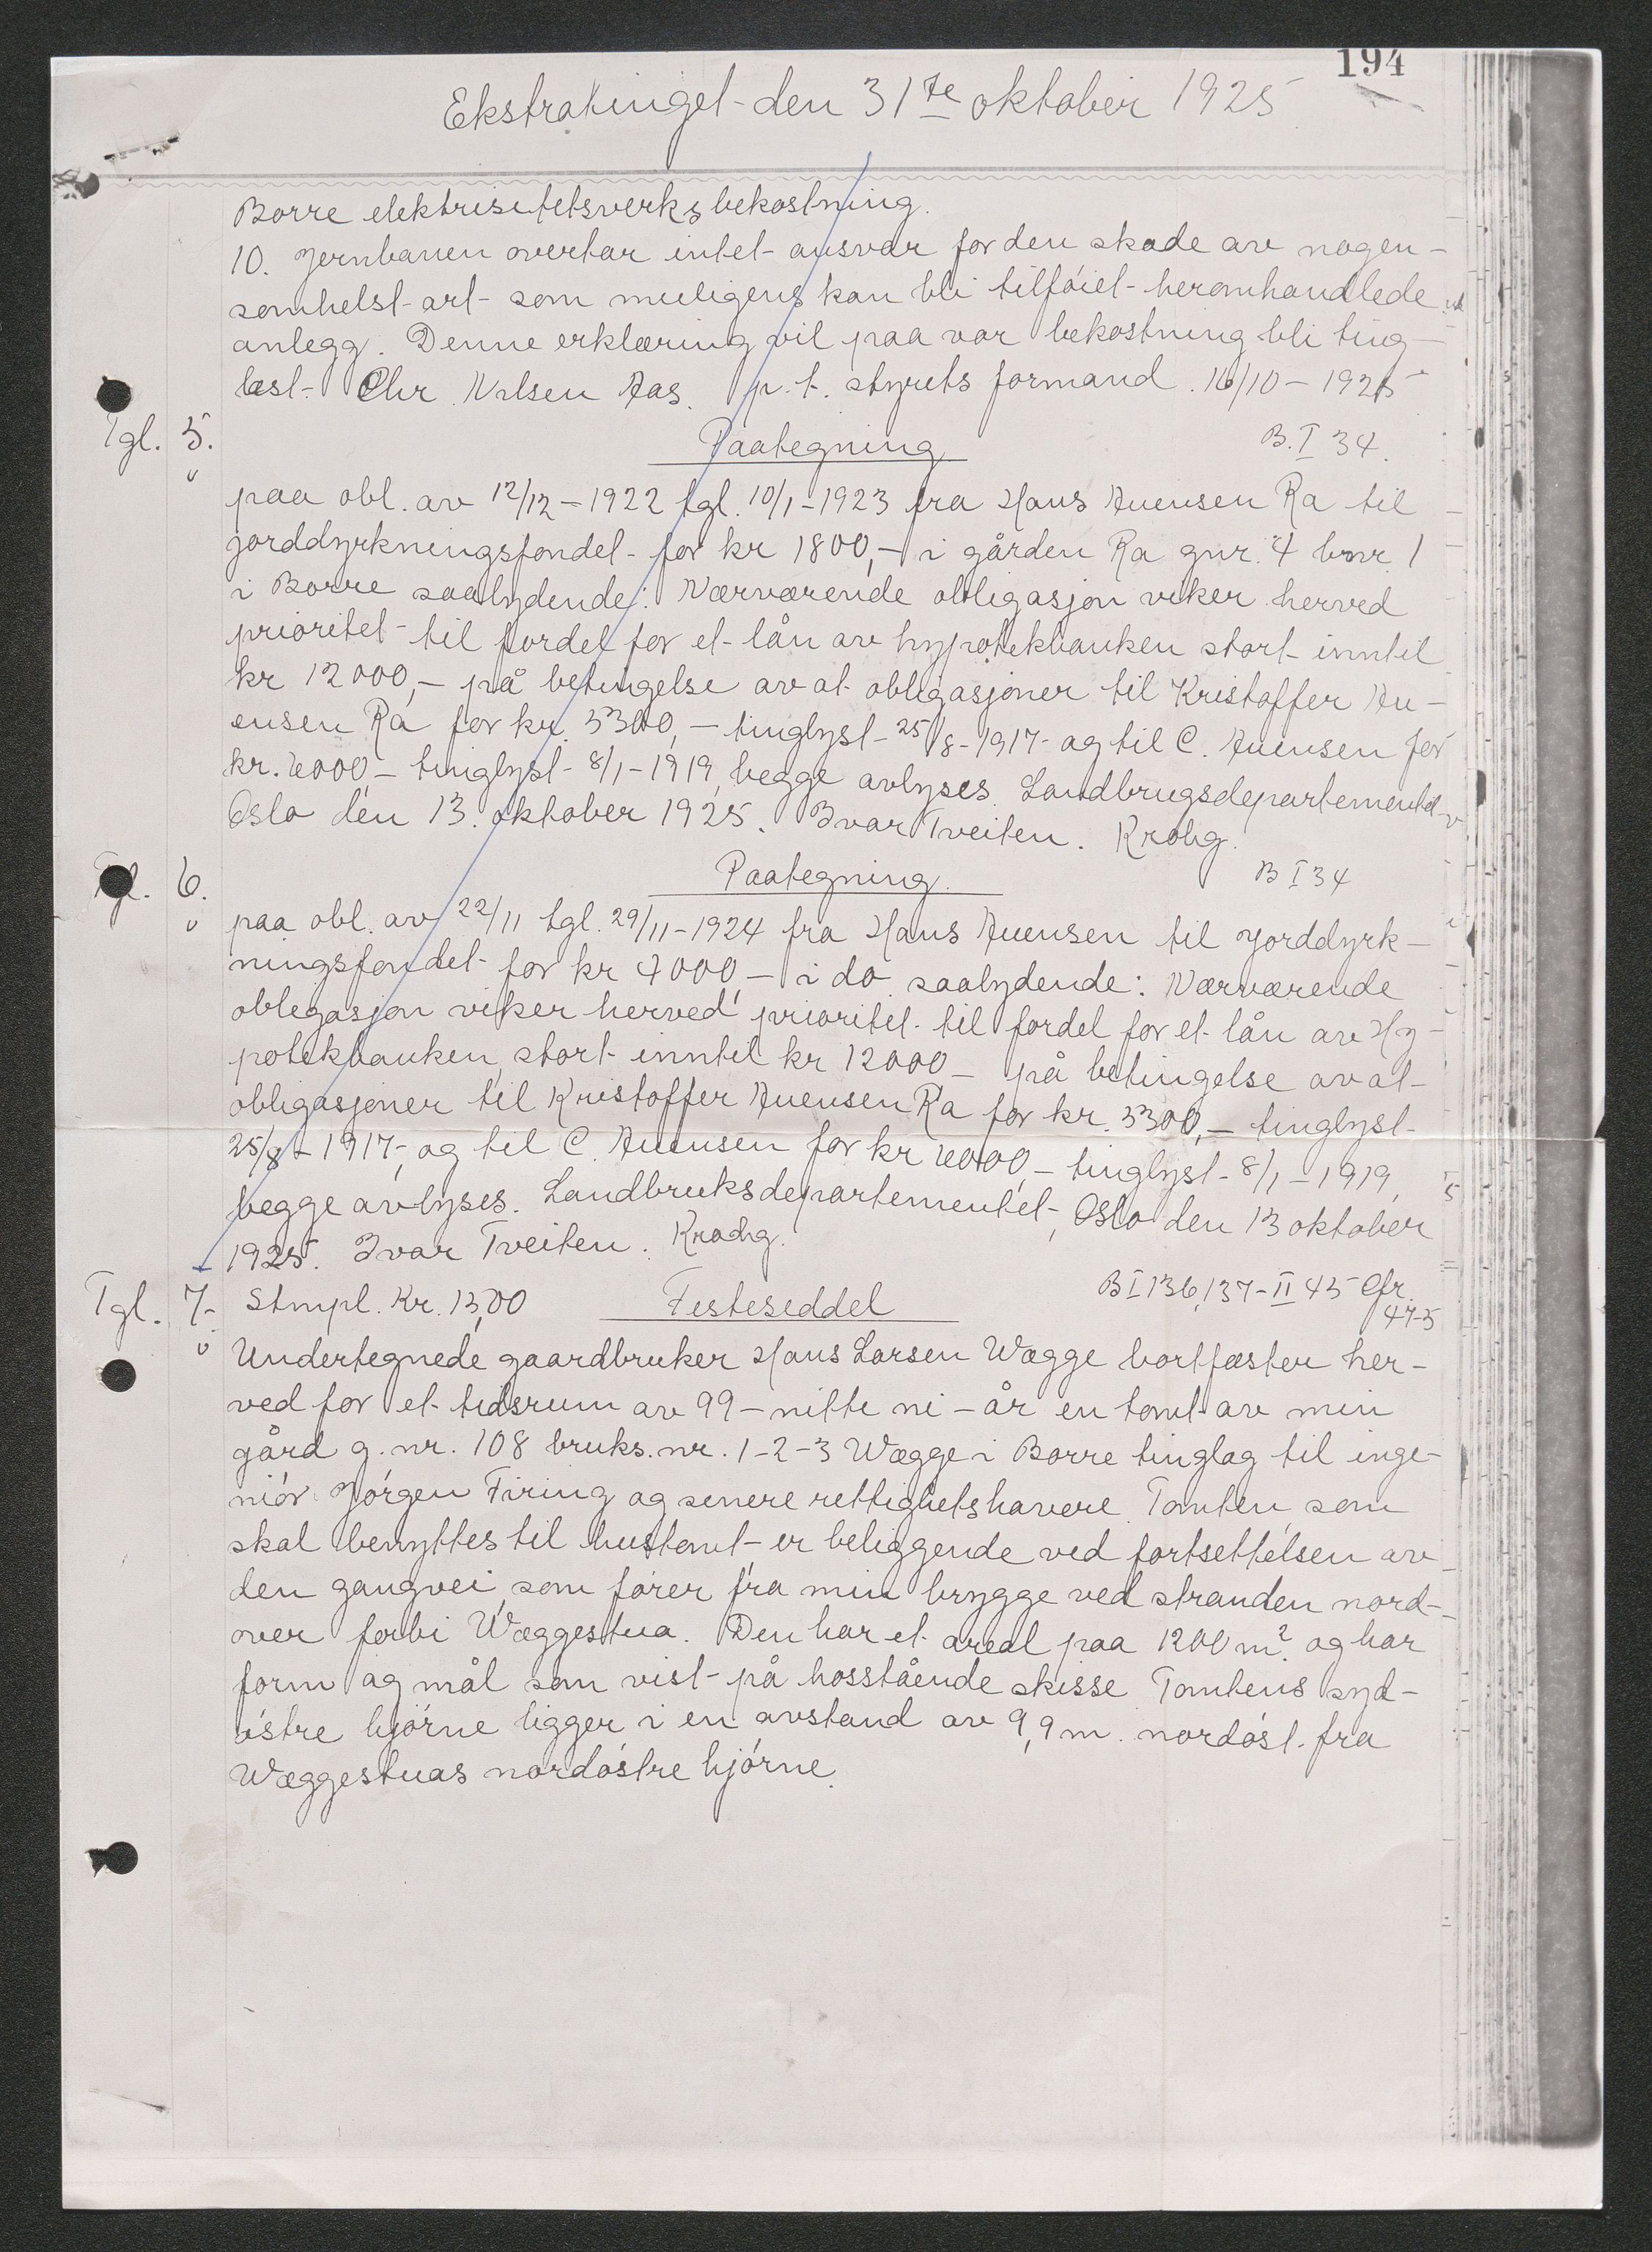 194
Ekstratinget den 31te oktober 1925
Borre elektrisitetsverks bekostning.
10. Jernbanen overtar intet ansvar for den skade av nogen-
somhelst art som muligens kan bli tilføiet heromhandlede
anlegg. Denne erklæring vil paa vor bekostning bli ting-
læst. Chr. Nilsen Aas. p.t. styrets formand. 16/10 - 1925
Tgl. 5. Paategning B. I 34.
paa obl. av 12/12 - 1922 tgl. 10/1 - 1923 fra Hans Auensen Ra til
jorddyrkningsfondet for kr 1800,- i gården Ra gnr. 4 bnr. 1
i Borre saalydende: Nærværende obligasjon viker herved
prioritet til fordel for et lån av hypotekbanken stort inntil
kr 12000,- på betingelse av at obligasjoner til Kristoffer Au-
ensen Ra for kr. 3300,- tinglyst 25/8 - 1917 og til C. Auensen for
kr. 4000 - tinglyst 8/1 - 1919, begge avlyses. Landbrugsdepartementet
Oslo den 13. oktober 1925. Ivar Tveiten. Krohg.
Tgl. 6. Paategning. B I 34
paa obl. av 22/11 tgl. 29/11 - 1924 fra Hans Auensen til jorddyrk-
ningsfondet for kr 4000,- i do saalydende: Nærværende
obligasjon viker herved prioritet til fordel for et lån av Hy-
potekbanken, stort inntil kr 12000 - på betingelse av at
obligasjoner til Kristoffer Auensen Ra for kr. 3300,- tinglyst
25/8 - 1917, og til C. Auensen for kr 4000,- tinglyst 8/1 - 1919,
begge avlyses. Landbruksdepartementet, Oslo den 13 oktober
1925. Ivar Tveiten. Krohg.
Tgl. 7. Stmpl. Kr. 13,00 Festeseddel B I 136, 137 - II 45 Cfr.
47-5
Undertegnede gaardbruker Hans Larsen Wægge bortfæster her-
ved for et tidsrum av 99 - nitti ni - år en tomt av min
gård g. nr. 108 bruks. nr. 1-2-3 Wægge i Borre tinglag til inge-
niør Jørgen Firing og senere rettighetshavere. Tomten, som
skal benyttes til hustomt er beliggende ved fortsettelsen av
den gangvei, som fører fra min brygge ved stranden nord-
over forbi Wæggestua. Den har et areal paa 1200 m². og har
form og mål som vist på hosstående skisse. Tomtens syd-
østre hjørne ligger i en avstand av 9,9 m. nordøst. fra
Wæggestuas nordøstre hjørne.